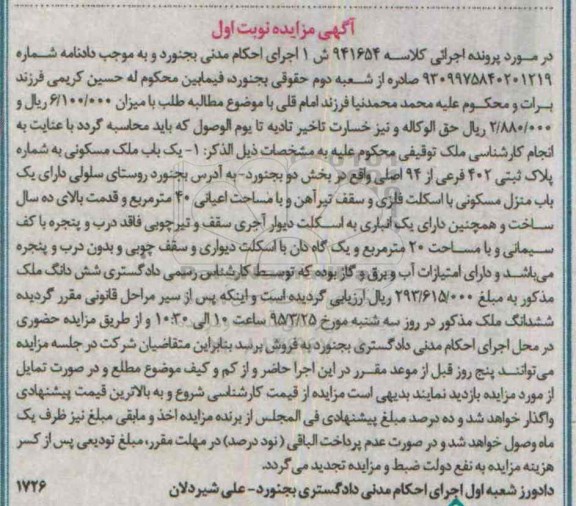 آگهی مزایده نوبت اول
در مورد پرونده اجرائی کلاسه ۹۴۱۶۵۴ ش ۱ اجرای احکام مدنی بجنورد و به موجب دادنامه شماره
۹۲۰۹۹۷۵۸۴۰۲۰۱۲۱۹ صادره از شعبه دوم حقوقی بجنورد، فیمابین محکوم له حسین کریمی فرزند
برات و محکوم علیه محمد محمدنیا فرزند امام قلی با موضوع مطالبه طلب با میزان ۶/۱۰۰/۰۰۰ ریال و
۲/۸۸۰/۰۰۰ ریال حق الوکاله و نیز خسارت تاخیر تادیه تا یوم الوصول که باید محاسبه گردد با عنایت به
انجام کارشناسی ملک توقیفی محکوم علیه به مشخصات ذیل الذکر: ۱- یک باب ملک مسکونی به شماره
پلاک ثبتی ۴۰۲ فرعی از ۹۴ اصلی واقع در بخش دو بجنورد- به آدرس بجنورد روستای سلولی دارای یک
باب منزل مسکونی با اسکلت فلزی و سقف تیرآهن و با مساحت اعیانی ۴۰ مترمربع و قدمت بالای ده سال
ساخت و همچنین دارای یک انباری به اسکلت دیوار آجری سقف و تیرچوبی فاقد درب و پنجره با کف
سیمانی و با مساحت ۲۰ مترمربع و یک گاه دان با اسکلت دیواری و سقف چوبی و بدون درب و پنجره
می‌باشد و دارای امتیازات آب و برق و گاز بوده که توسط کارشناس رسمی دادگستری شش دانگ ملک
مذکور به مبلغ ۲۹۳/۶۱۵/۰۰۰ ریال ارزیابی گردیده است و اینکه پس از سیر مراحل قانونی مقرر گردیده
ششدانگ ملک مذکور در روز سه شنبه مورخ ۹۵/۳/۲۵ ساعت ۱۰ الی ۱۰:۳۰ و از طریق مزایده حضوری
در محل اجرای احکام مدنی دادگستری بجنورد به فروش برسد بنابراین متقاضیان شرکت در جلسه مزایده
می‌توانند پنج روز قبل از موعد مقرر در این اجرا حاضر و از کم و کیف موضوع مطلع و در صورت تمایل
از مورد مزایده بازدید نمایند بدیهی است مزایده از قیمت کارشناسی شروع و به بالاترین قیمت پیشنهادی
واگذار خواهد شد و ده درصد مبلغ پیشنهادی فی المجلس از برنده مزایده اخذ و مابقی مبلغ نیز ظرف یک
ماه وصول خواهد شد و در صورت عدم پرداخت الباقی (نود درصد) در مهلت مقرر، مبلغ تودیعی پس از کسر
هزینه مزایده به نفع دولت ضبط و مزایده تجدید می‌گردد.
دادورز شعبه اول اجرای احکام مدنی دادگستری بجنورد- علی شیردلان ۱۷۲۶